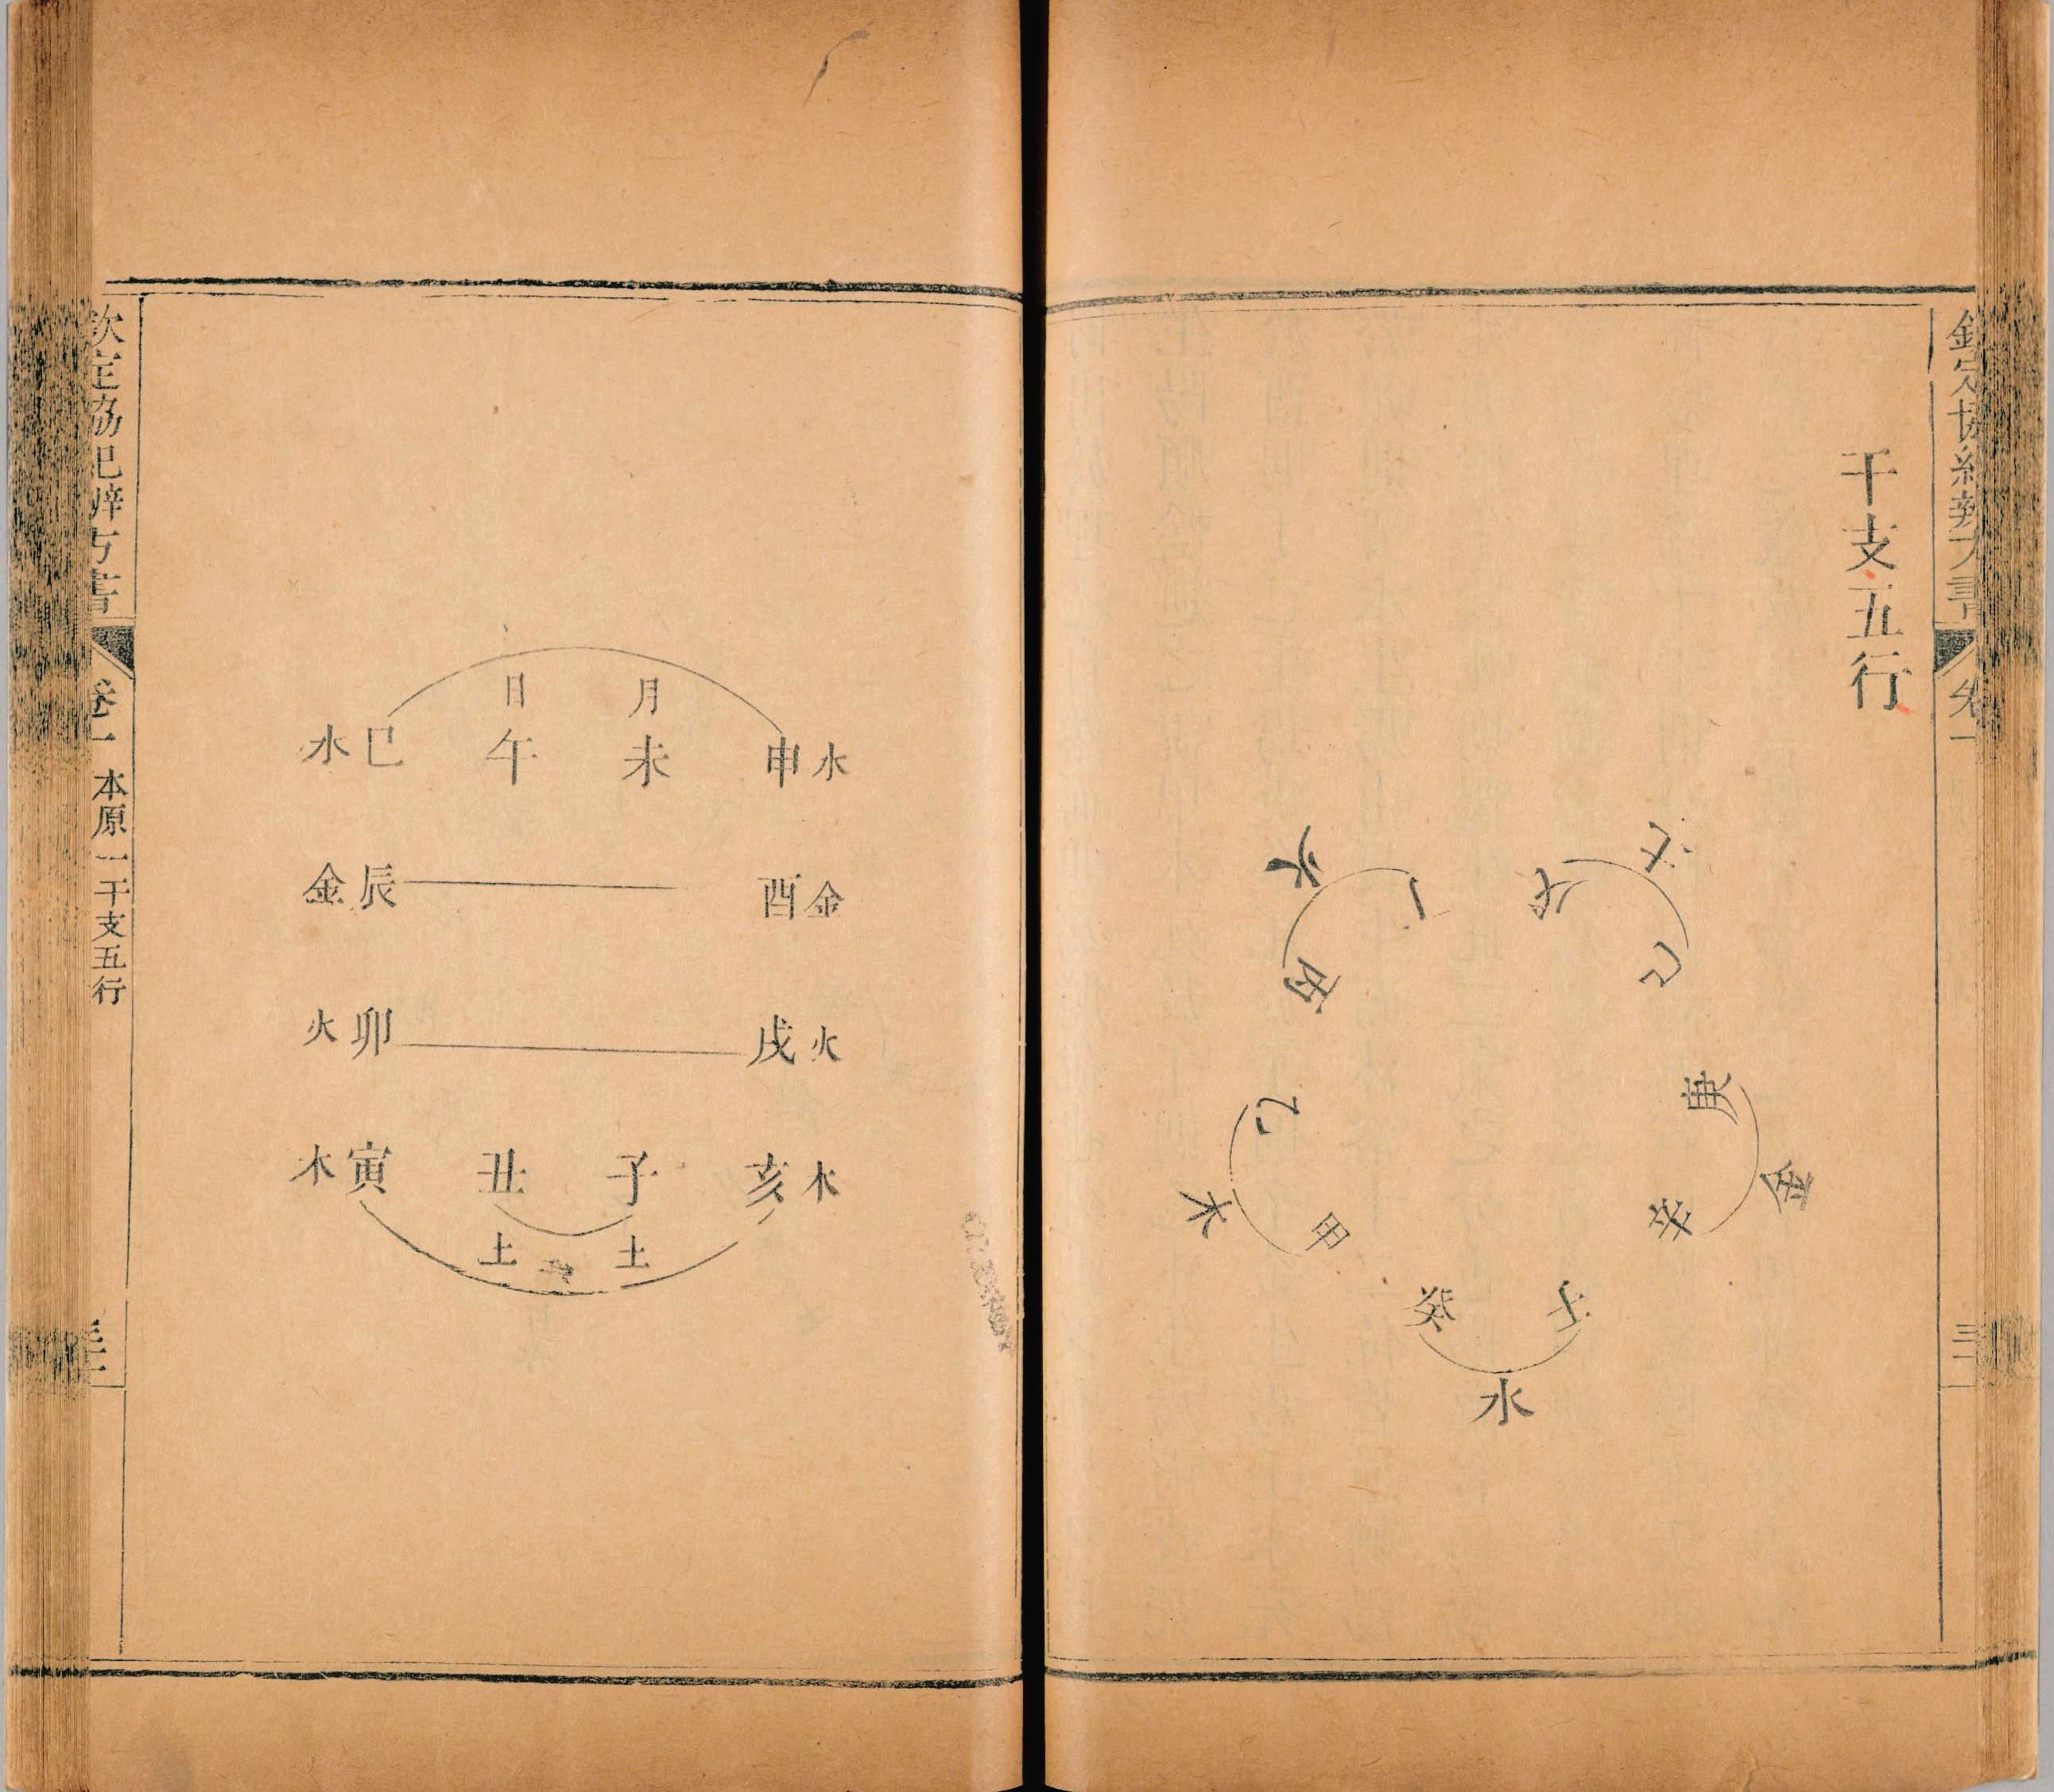 干支五行
火 丁 丙
土 戊 己
庚 辛 金
乙 甲 木
癸 壬
水
日 月
水 巳 午 未 申 水
金 辰 酉 金
火 卯 戌 火
木 寅 丑 子 亥 木
土 土
欽定協紀辨方書
卷一 本原一干支五行